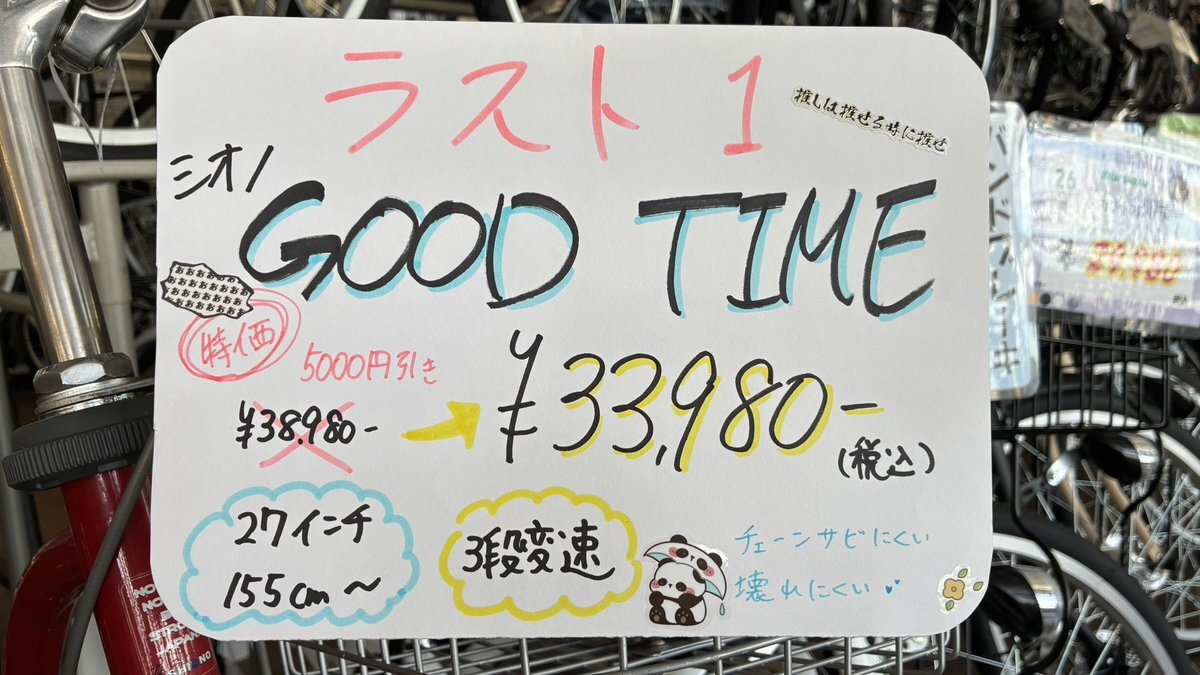 ラスト 1
推しは推せる時に推せ
シオノ
GOOD TIME
ああああああ
特価
5000円引き
¥38,980-
¥33,980-
(税込)
27インチ
155cm～
3段変速
チェーンサビにくい
壊れにくい
26